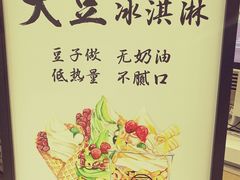 大豆冰淇淋
豆子做 无奶油
低热量 不腻口